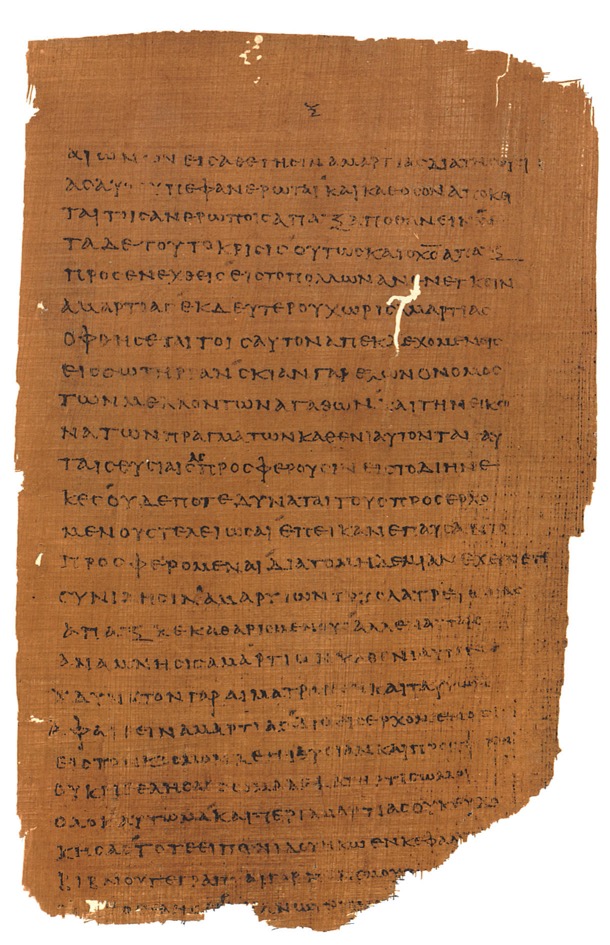 Ξ
ΑΙΩΝΩΝΕΙϹΑΘΕΤΗϹΙΝΑΜΑΡΤΙΑϹΔΙΑΤΗϹ
ΑϹΑΥΤΟΥΠΕΦΑΝΕΡΩΤΑΙΚΑΙΚΑΘΟϹΟΝΑΠΟΚΕΙ
ΤΑΙΤΟΙϹΑΝΘΡΩΠΟΙϹΑΠΑΞΑΠΟΘΑΝΕΙΝ
ΤΑΔΕΤΟΥΤΟΚΡΙϹΙϹΟΥΤΩϹΚΑΙΟΧϹΑΠΑΞ
ΠΡΟϹΕΝΕΧΘΕΙϹΕΙϹΤΟΠΟΛΛΩΝΑΝΕΝΕΓΚΕΙΝ
ΑΜΑΡΤΙΑϹΕΚΔΕΥΤΕΡΟΥΧΩΡΙϹΑΜΑΡΤΙΑϹ
ΟΦΘΗϹΕΤΑΙΤΟΙϹΑΥΤΟΝΑΠΕΚΔΕΧΟΜΕΝΟΙϹ
ΕΙϹϹΩΤΗΡΙΑΝϹΚΙΑΝΓΑΡΕΧΩΝΟΝΟΜΟϹ
ΤΩΝΜΕΛΛΟΝΤΩΝΑΓΑΘΩΝΚΑΙΤΗΝΕΙΚΟ
ΝΑΤΩΝΠΡΑΓΜΑΤΩΝΚΑΘΕΝΙΑΥΤΟΝΤΑΙϹΑΥ
ΤΑΙϹΘΥϹΙΑΙϹΑϹΠΡΟϹΦΕΡΟΥϹΙΝΕΙϹΤΟΔΙΗΝΕ
ΚΕϹΟΥΔΕΠΟΤΕΔΥΝΑΤΑΙΤΟΥϹΠΡΟϹΕΡΧΟ
ΜΕΝΟΥϹΤΕΛΕΙΩϹΑΙΕΠΕΙΚΑΝΕΠΑΥϹΑΝΤΟ
ΠΡΟϹΦΕΡΟΜΕΝΑΙΔΙΑΤΟΜΗΔΕΜΙΑΝΕΧΕΙΝΕΤΙ
ϹΥΝΙΔΗϹΙΝΑΜΑΡΤΙΩΝΤΟΥϹΛΑΤΡΕΥΟΝΤΑϹ
ΑΠΑΞΚΕΚΑΘΑΡΙϹΜΕΝΟΥϹΑΛΛΕΝΑΥΤΑΙϹ
ΑΝΑΜΝΗϹΙϹΑΜΑΡΤΙΩΝΚΑΤΕΝΙΑΥΤΟΝ
ΑΔΥΝΑΤΟΝΓΑΡΑΙΜΑΤΡΑΓΩΝΚΑΙΤΑΥΡΩΝ
ΑΦΑΙΡΕΙΝΑΜΑΡΤΙΑϹΔΙΟΕΙϹΕΡΧΟΜΕΝΟϹ
ΕΙϹΤΟΝΚΟϹΜΟΝΛΕΓΕΙΘΥϹΙΑΝΚΑΙΠΡΟϹ
ΟΥΚΗΘΕΛΗϹΑϹϹΩΜΑΔΕΚΑΤΗΡΤΙϹΩΜΟΙ
ΟΛΟΚΑΥΤΩΜΑΚΑΙΠΕΡΙΑΜΑΡΤΙΑϹΟΥΚΕΥΔΟ
ΚΗϹΑϹΤΟΤΕΕΙΠΟΝΙΔΟΥΗΚΩΕΝΚΕΦΑΛΙ
ΒΙΒΛΙΟΥΓΕΓΡΑΠΤΑΙΓΑΡ